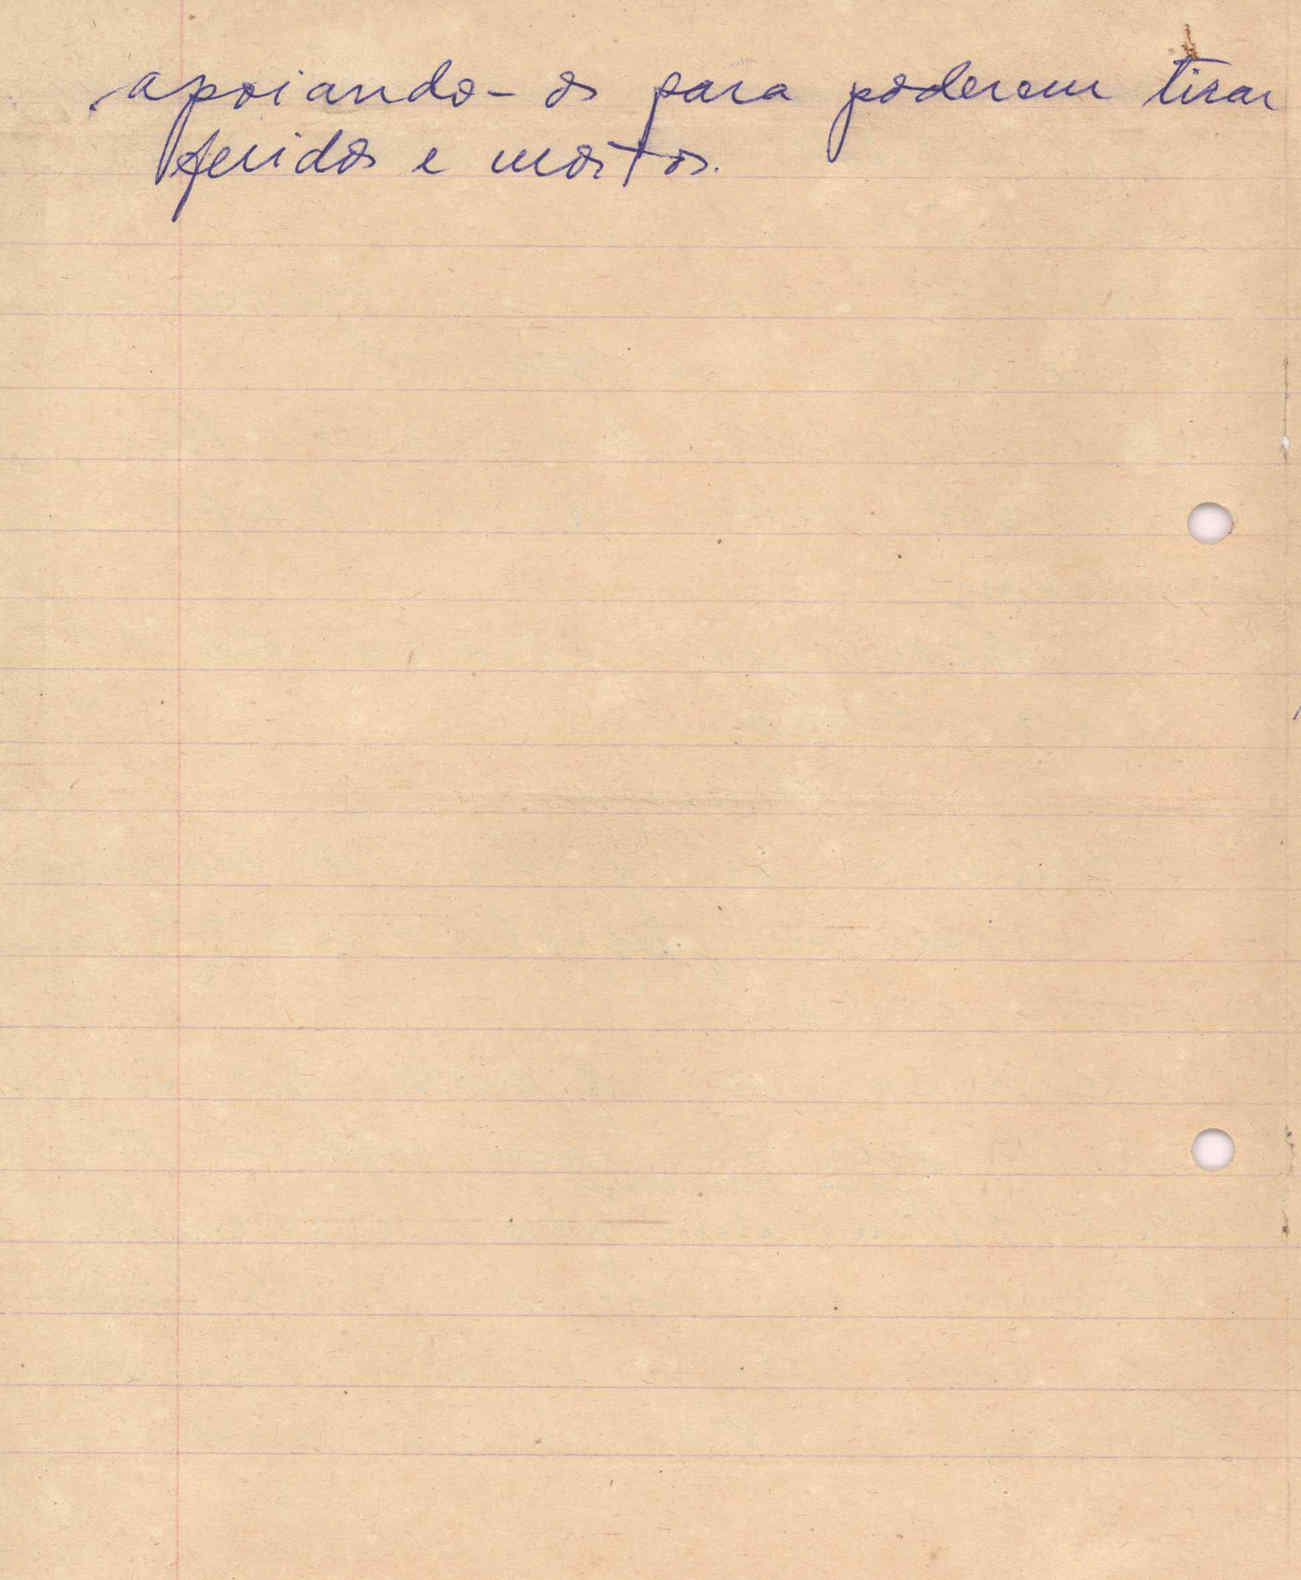 apoiando-os para poderem tirar
feridos e mortos.